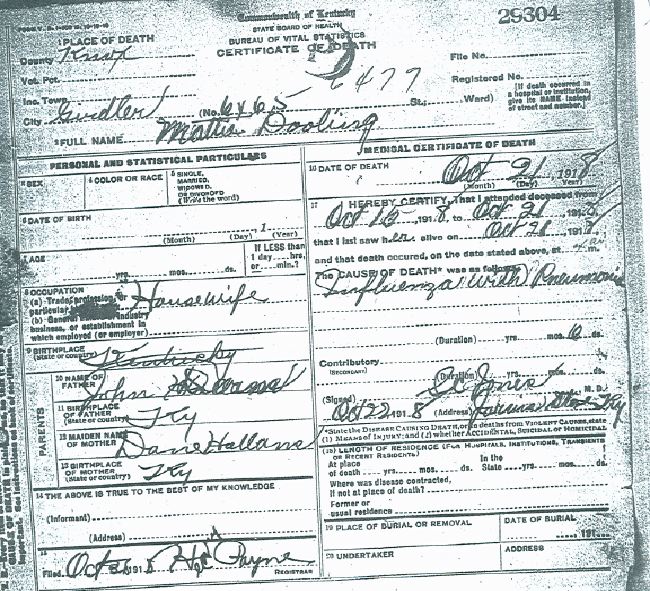 Commonwealth of Kentucky
29304
STATE BOARD OF HEALTH
BUREAU OF VITAL STATISTICS
CERTIFICATE OF DEATH
1 PLACE OF DEATH
County Knox
File No.
Vot. Pct.
6477
Registered No.
Inc. Town
(If death occurred in
a hospital or institution,
give its NAME instead
of street and number.)
City Girdler (No. St., Ward)
2 FULL NAME Mattie
PERSONAL AND STATISTICAL PARTICULARS
3 SEX
4 COLOR OR RACE
5 SINGLE,
MARRIED,
WIDOWED,
OR DIVORCED
(Write the word)
6 DATE OF BIRTH
1
(Month) (Day) (Year)
7 AGE
If LESS than
1 day.....hrs.
or.....min.?
yrs. mos. ds.
8 OCCUPATION
(a) Trade, profession, or
particular Housewife
(b) General industry
business, or establishment in
which employed (or employer)
9 BIRTHPLACE
(State or country) Kentucky
PARENTS
10 NAME OF
FATHER John
11 BIRTHPLACE
OF FATHER
(State or country) Ky
12 MAIDEN NAME
OF MOTHER
13 BIRTHPLACE
OF MOTHER
(State or country) Ky
14 THE ABOVE IS TRUE TO THE BEST OF MY KNOWLEDGE
(Informant)
(Address)
15
Filed Oct 191 8 Payne
REGISTRAR
MEDICAL CERTIFICATE OF DEATH
16 DATE OF DEATH Oct 21 1918
(Month) (Day) Year)
17
I HEREBY CERTIFY, That I attended deceased from
Oct 191 8 to Oct 21 191
that I last saw h alive on Oct 191
and that death occured, on the date stated above, at m.
The CAUSE OF DEATH* was as follows:
Influenza with Pneumonia
(Duration) yrs. mos. 6 ds.
Contributory
(SECONDARY)
(Duration) yrs. mos. ds.
(Signed) M. D.
Oct 22 191 8 (Address) Ky
*State the DISEASE CAUSING DEATH, or, in deaths from VIOLENT CAUSES, state
(1) MEANS OF INJURY; and (2) whether ACCIDENTAL, SUICIDAL, or HOMICIDAL
(18) LENGTH OF RESIDENCE (FOR HOSPITALS, INSTITUTIONS, TRANSIENTS
OR RECENT RESIDENTS)
At place In the
of death yrs. mos. ds. State yrs. mos. ds.
Where was disease contracted,
if not at place of death?
Former or
usual residence
19 PLACE OF BURIAL OR REMOVAL
DATE OF BURIAL
191
20 UNDERTAKER
ADDRESS